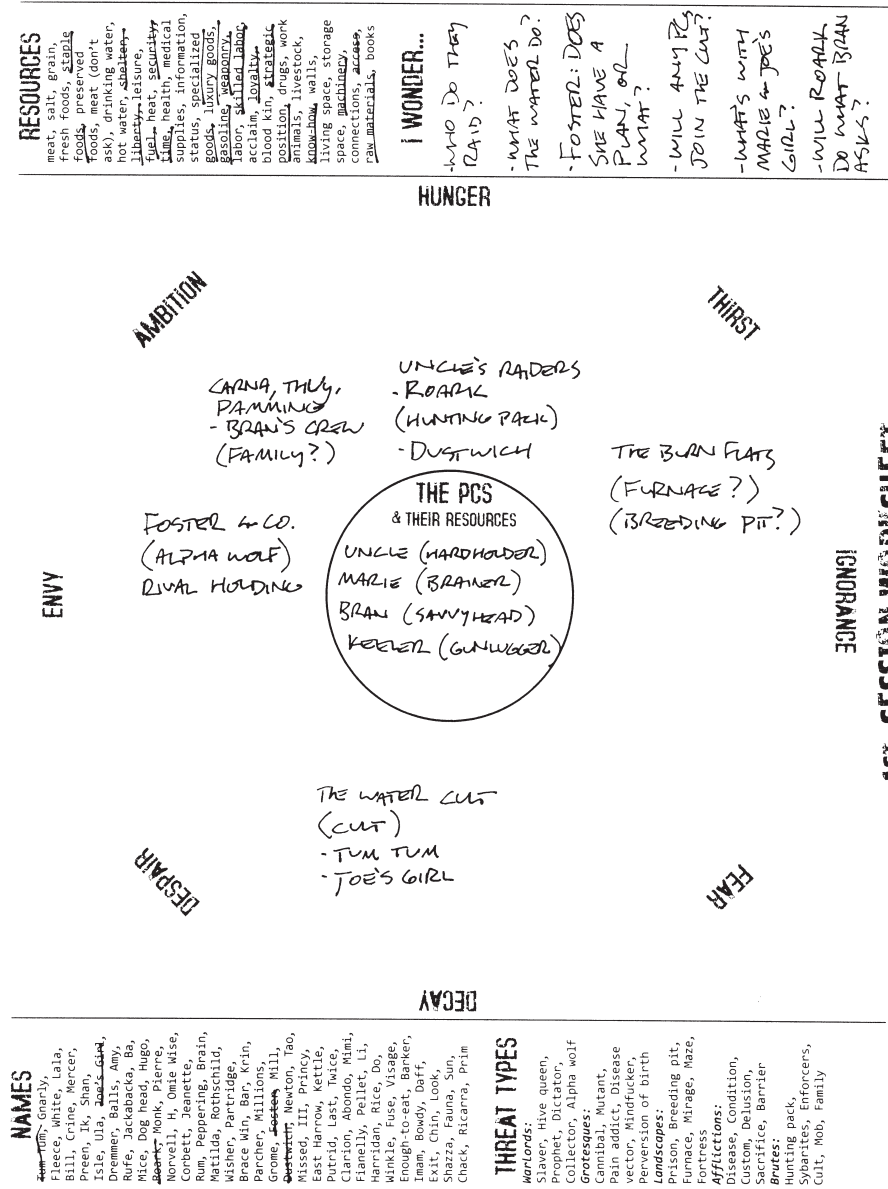 RESOURCES
meat, salt, grain,
fresh foods, staple
foods, preserved
foods, meat (don't
ask), drinking water,
hot water, shelter,
liberty, leisure,
fuel, heat, security,
time, health, medical
supplies, information,
status, specialized
goods, luxury goods,
gasoline, weaponry,
labor, skilled labor,
acclaim, loyalty,
blood kin, strategic
position, drugs, work
animals, livestock,
know-how, walls,
living space, storage
space, machinery,
connections, access,
raw materials, books
I WONDER...
-WHO DO THEY
RAID?
-WHAT DOES
THE WATER DO?
-FOSTER: DOES
SHE HAVE A
PLAN, OR
WHAT?
-WILL ANY PCS
JOIN THE CULT?
-WHAT'S WITH
MARIE & JOE'S
GIRL?
-WILL ROARK
DO WHAT BRAN
ASKS?
HUNGER
AMBITION
THIRST
CARNA, THUY,
PAMMING
- BRAN'S CREW
(FAMILY?)
UNCLE'S RAIDERS
-ROARK
(HUNTING PACK)
-DUSTWICH
THE BURN FLATS
(FURNACE?)
(BREEDING PIT?)
FOSTER & CO.
(ALPHA WOLF)
RIVAL HOLDING
THE PCS
& THEIR RESOURCES
UNCLE (HARDHOLDER)
MARIE (BRAINER)
BRAN (SAVVYHEAD)
KEELER (GUNLUGGER)
ENVY
IGNORANCE
1ST SESSION WORKSHEET
THE WATER CULT
(CULT)
-TUM TUM
-JOE'S GIRL
DESPAIR
FEAR
DECAY
NAMES
Tum Tum, Gnarly,
Fleece, White, Lala,
Bill, Crine, Mercer,
Preen, Ik, Shan,
Isle, Ula, Joe's Girl,
Dremmer, Balls, Amy,
Rufe, Jackabacka, Ba,
Mice, Dog head, Hugo,
Roark, Monk, Pierre,
Norvell, H, Omie Wise,
Corbett, Jeanette,
Rum, Peppering, Brain,
Matilda, Rothschild,
Wisher, Partridge,
Brace Win, Bar, Krin,
Parcher, Millions,
Grome, Foster, Mill,
Dustwich, Newton, Tao,
Missed, III, Princy,
East Harrow, Kettle,
Putrid, Last, Twice,
Clarion, Abondo, Mimi,
Fianelly, Pellet, Li,
Harridan, Rice, Do,
Winkle, Fuse, Visage,
Enough-to-eat, Barker,
Imam, Bowdy, Daff,
Exit, Chin, Look,
Shazza, Fauna, Sun,
Chack, Ricarra, Prim
THREAT TYPES
Warlords:
Slaver, Hive queen,
Prophet, Dictator,
Collector, Alpha wolf
Grotesques:
Cannibal, Mutant,
Pain addict, Disease
vector, Mindfucker,
Perversion of birth
Landscapes:
Prison, Breeding pit,
Furnace, Mirage, Maze,
Fortress
Afflictions:
Disease, Condition,
Custom, Delusion,
Sacrifice, Barrier
Brutes:
Hunting pack,
Sybarites, Enforcers,
Cult, Mob, Family